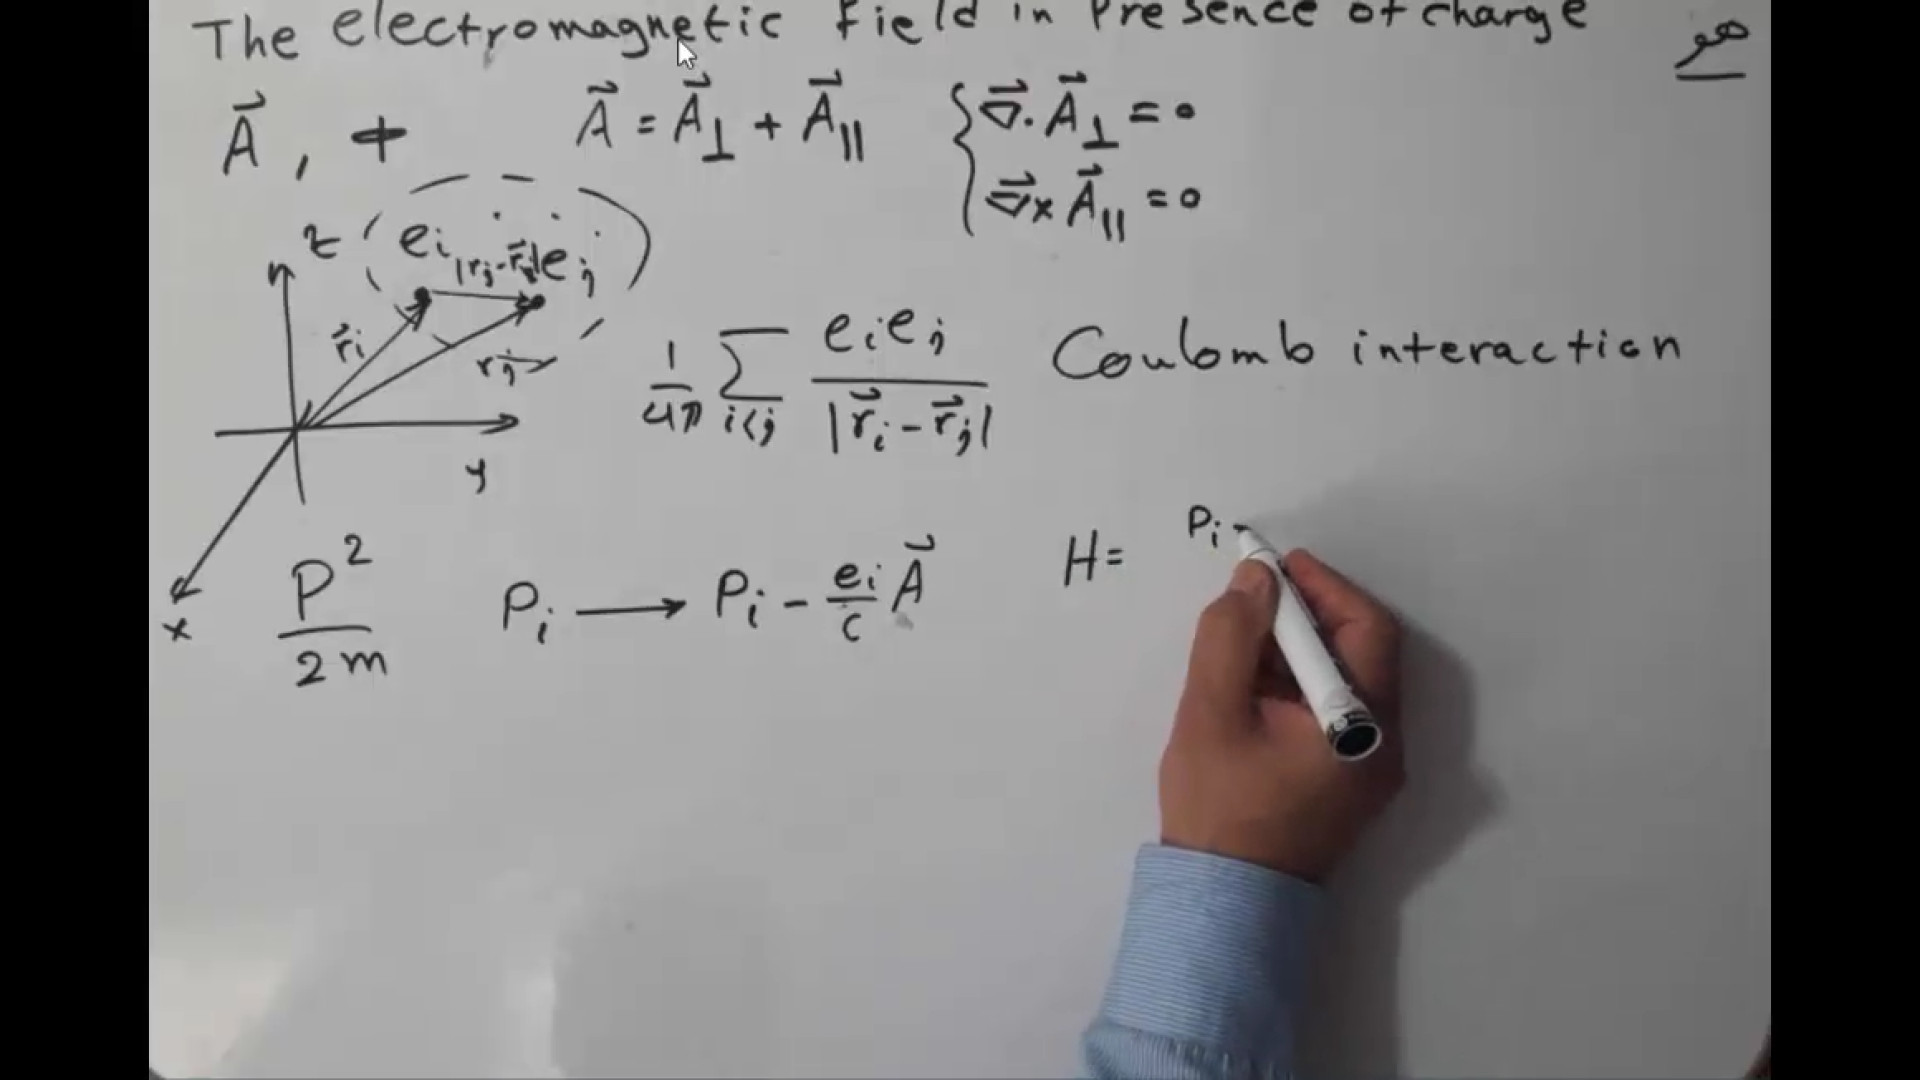 The electromagnetic field in presence of charge
هو
A⃗, φ A⃗ = A⃗⊥ + A⃗∥ { ∇⃗·A⃗⊥ = 0
∇⃗×A⃗∥ = 0
z eᵢ |rⱼ-r⃗ᵢ| eⱼ
r⃗ᵢ rⱼ
y
x
1/4π ∑ i<j eᵢeⱼ/|r⃗ᵢ-r⃗ⱼ| Coulomb interaction
P²/2m Pᵢ → Pᵢ - eᵢ/c A⃗ H= Pᵢ -